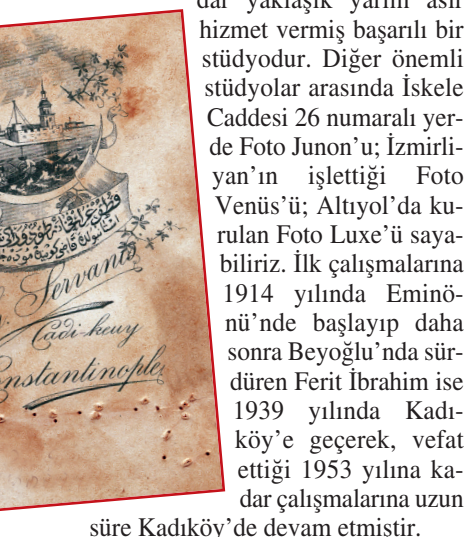 dar yaklaşık yarım asır
hizmet vermiş başarılı bir
stüdyodur. Diğer önemli
stüdyolar arasında İskele
Caddesi 26 numaralı yer-
de Foto Junon’u; İzmirli-
yan’ın işlettiği Foto
Venüs’ü; Altıyol’da ku-
rulan Foto Luxe’ü saya-
biliriz. İlk çalışmalarına
1914 yılında Eminö-
nü’nde başlayıp daha
sonra Beyoğlu’nda sür-
düren Ferit İbrahim ise
1939 yılında Kadı-
köy’e geçerek, vefat
ettiği 1953 yılına ka-
dar çalışmalarına uzun
süre Kadıköy’de devam etmiştir.
Servanis
Cadi-keuy